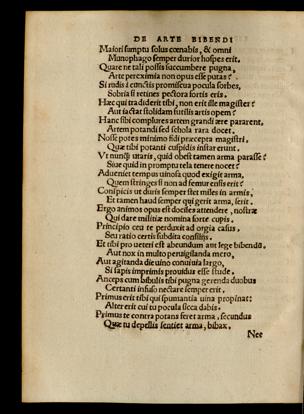 DE ARTE BIBENDI
Maiori sumptu solus cœnabis, & omni
Munophago semper durior hospes erit.
Quare ne tali possis succumbere pugna,
Arte per eximia non opus esse putas?
Si rudis è cunctis promiscua pocula sorbes,
Sobria si retines pectora fortis eris.
Hæc qui tradiderit tibi, non erit ille magister?
Aut iactat stolidam futilis artis opem?
Hanc sibi complures artem grandi ære pararent,
Artem potandi sed schola rara docet.
Nosse potes minimo fidi præcepta magistri,
Quæ tibi potanti cuspidis instar erunt.
Vt nunq̃ utaris, quid obest tamen arma parasse?
Siue quid in promptu tela tenere nocet?
Adueniet tempus uinosa quod exigit arma,
Quem stringes si non ad femur ensis erit?
Conspicis ut duris semper stet miles in armis,
Et tamen haud semper qui gerit arma, ferit.
Ergo animos opus est dociles attendere, nostræ
Qui dare militiæ nomina forte cupis.
Principio ceu te perduxit ad orgia casus,
Seu ratio certis subdita consiliis.
Et tibi pro ueteri est abeundum aut lege bibendū.
Aut nox in multo peruigilanda mero,
Aut agitanda die uino conuiuia largo,
Si sapis imprimis prouidus esse stude.
Anceps cum bibulis tibi pugna gerenda duobus
Certanti infuso nectare semper erit.
Primus erit tibi qui spumantia uina propinat:
Alter erit cui tu pocula sicca dabis.
Primus te contra potans feret arma, secundus
Quæ tu depellis sentiet arma, bibax.
Nec